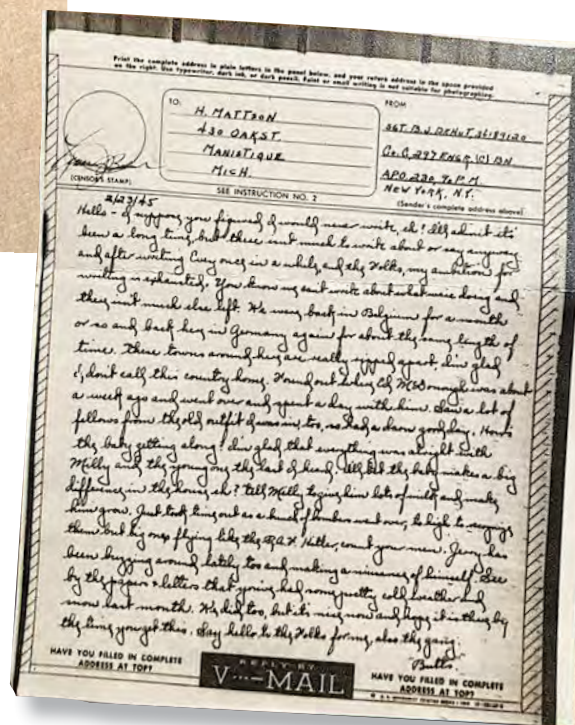 Print the complete address in plain letters in the panel below, and your return address in the space provided
on the right. Use typewriter, dark ink, or dark pencil. Faint or small writing is not suitable for photographing.
TO:
H. MATTSON
430 OAK ST.
MANISTIQUE
MICH.
FROM
SGT. B.J. 36189120
Co. C, 297 ENGR. (C) BN
APO 230 % P.M.
NEW YORK, N.Y.
(Sender's complete address above)
(CENSOR'S STAMP)
SEE INSTRUCTION NO. 2
2/23/45
Hello - I suppose you figured I would never write, eh? I'll admit it's
been a long time, but there isn't much to write about or say anyway
and after writing Evey once in a while, and the Folks, my ambition for
writing is exhausted. You know we can't write about what we're doing and
there isn't much else left. We were back in Belgium for a month
or so and back here in Germany again for about the same length of
time. These towns around here are really ripped apart, I'm glad
I don't call this country home. Found out where was about
a week ago and went over and spent a day with him. Saw a lot of
fellows from the old outfit I was in, too, so had a darn good day. How's
the baby getting along? I'm glad that everything was alright with
Milly and the young one the last I heard. I'll bet the baby makes a big
difference in the house eh? Tell Milly to give him lots of milk and make
him grow. Just took time out as a bunch of bombers went over, to high to recognize
them but big ones flying like the R.A.F. Hitler, count your men. Jerry has
been buzzing around lately too and making a nuisance of himself. See
by the papers & letters that you've had some pretty cold weather and
snow last month. We did too, but it's nice now and hope it is there by
the time you get this. Say hello to the Folks for me, also the gang.
Butts.
HAVE YOU FILLED IN COMPLETE
ADDRESS AT TOP?
REPLY BY
V···—MAIL
HAVE YOU FILLED IN COMPLETE
ADDRESS AT TOP?